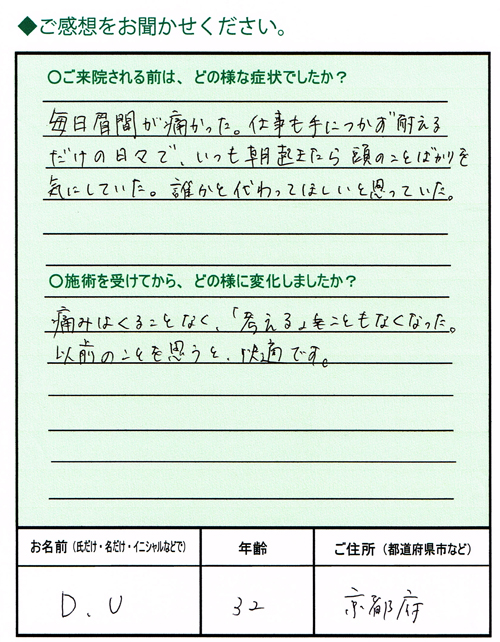 ◆ご感想をお聞かせください。
○ご来院される前は、どの様な症状でしたか？
毎日眉間が痛かった。仕事も手につかず耐える
だけの日々で、いつも朝起きたら頭のことばかりを
気にしていた。誰かと代わってほしいと思っていた。
○施術を受けてから、どの様に変化しましたか？
痛みはくることなく、「考える」をこともなくなった。
以前のことを思うと、快適です。
お名前（氏だけ・名だけ・イニシャルなどで） 年齢 ご住所（都道府県市など）
D、U 32 京都府